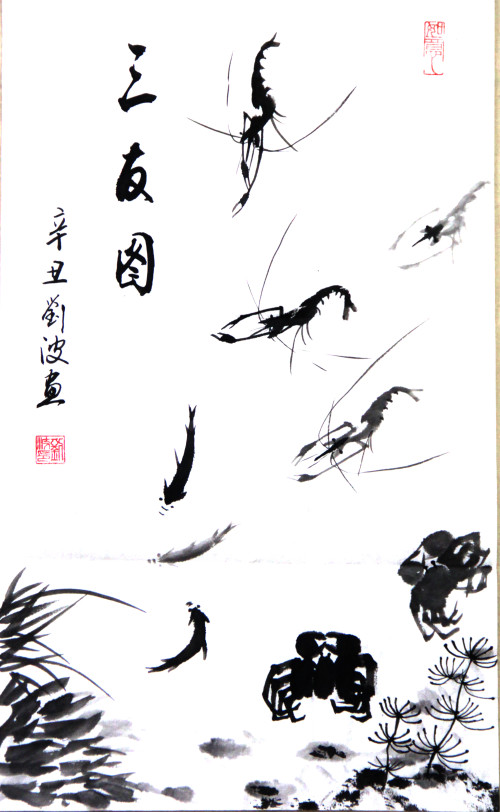 三友图
辛丑劉波畫